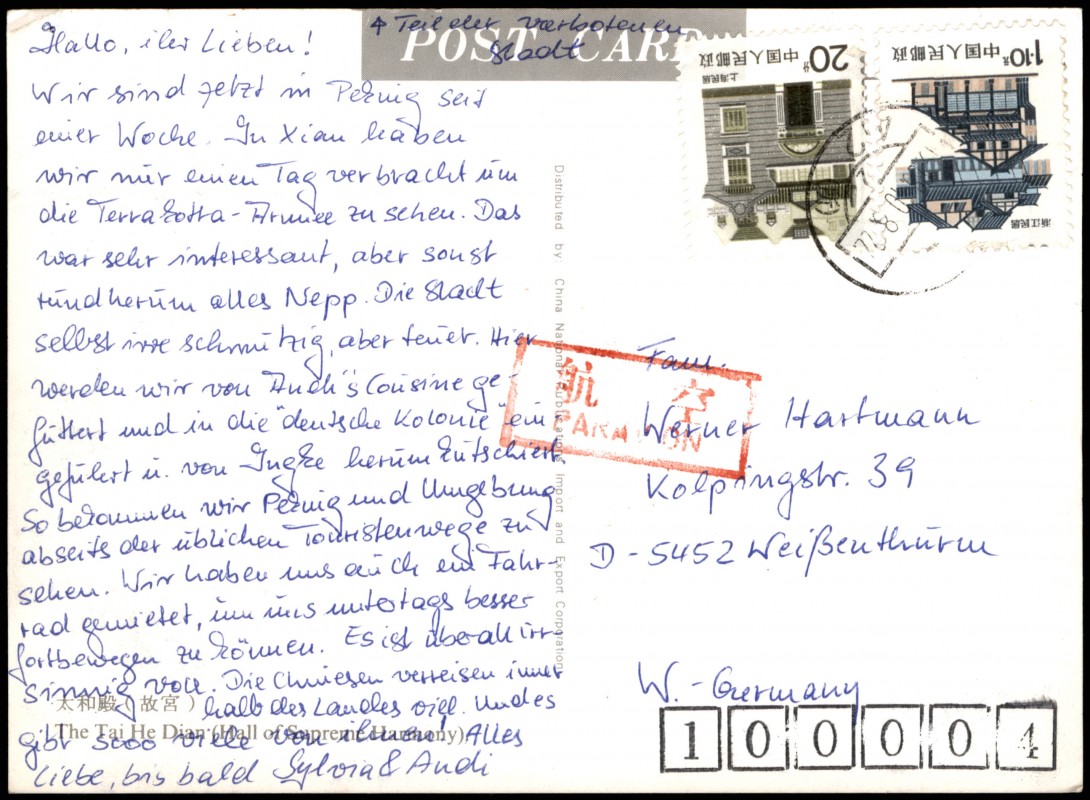 ↑ Teil der verbotenen
Stadt
POST CARD
Hallo, ihr Lieben!
Wir sind jetzt in Peking seit
einer Woche. In Xian haben
wir nur einen Tag verbracht um
die Terrakotta-Armee zu sehen. Das
war sehr interessant, aber sonst
rundherum alles Nepp. Die Stadt
selbst irre schmutzig, aber teuer. Hier
werden wir von Andi's Cousine ge-
füttert und in die "deutsche Kolonie" ein
geführt u. von herum kutschiert.
So bekommen wir Peking und Umgebung
abseits der üblichen Touristenwege zu
sehen. Wir haben uns auch ein Fahr-
rad gemietet, um uns untertags besser
fortbewegen zu können. Es ist überall irr-
sinnig voll. Die Chinesen verreisen inner
halb des Landes viel. Und es
gibt sooo viele von ihnen! Alles
Liebe, bis bald Sylvia & Andi
太和殿(故宮)
The Tai He Dian (Hall of Supreme Harmony)
Distributed by: China National Publications Import and Export Corporation
20分
中国人民邮政
上海民居
1.10元
中国人民邮政
浙江民居
航空
PAR AVION
Fam.
Werner Hartmann
Kolpingstr. 39
D-5452 Weißenthurm
W.-Germany
100004